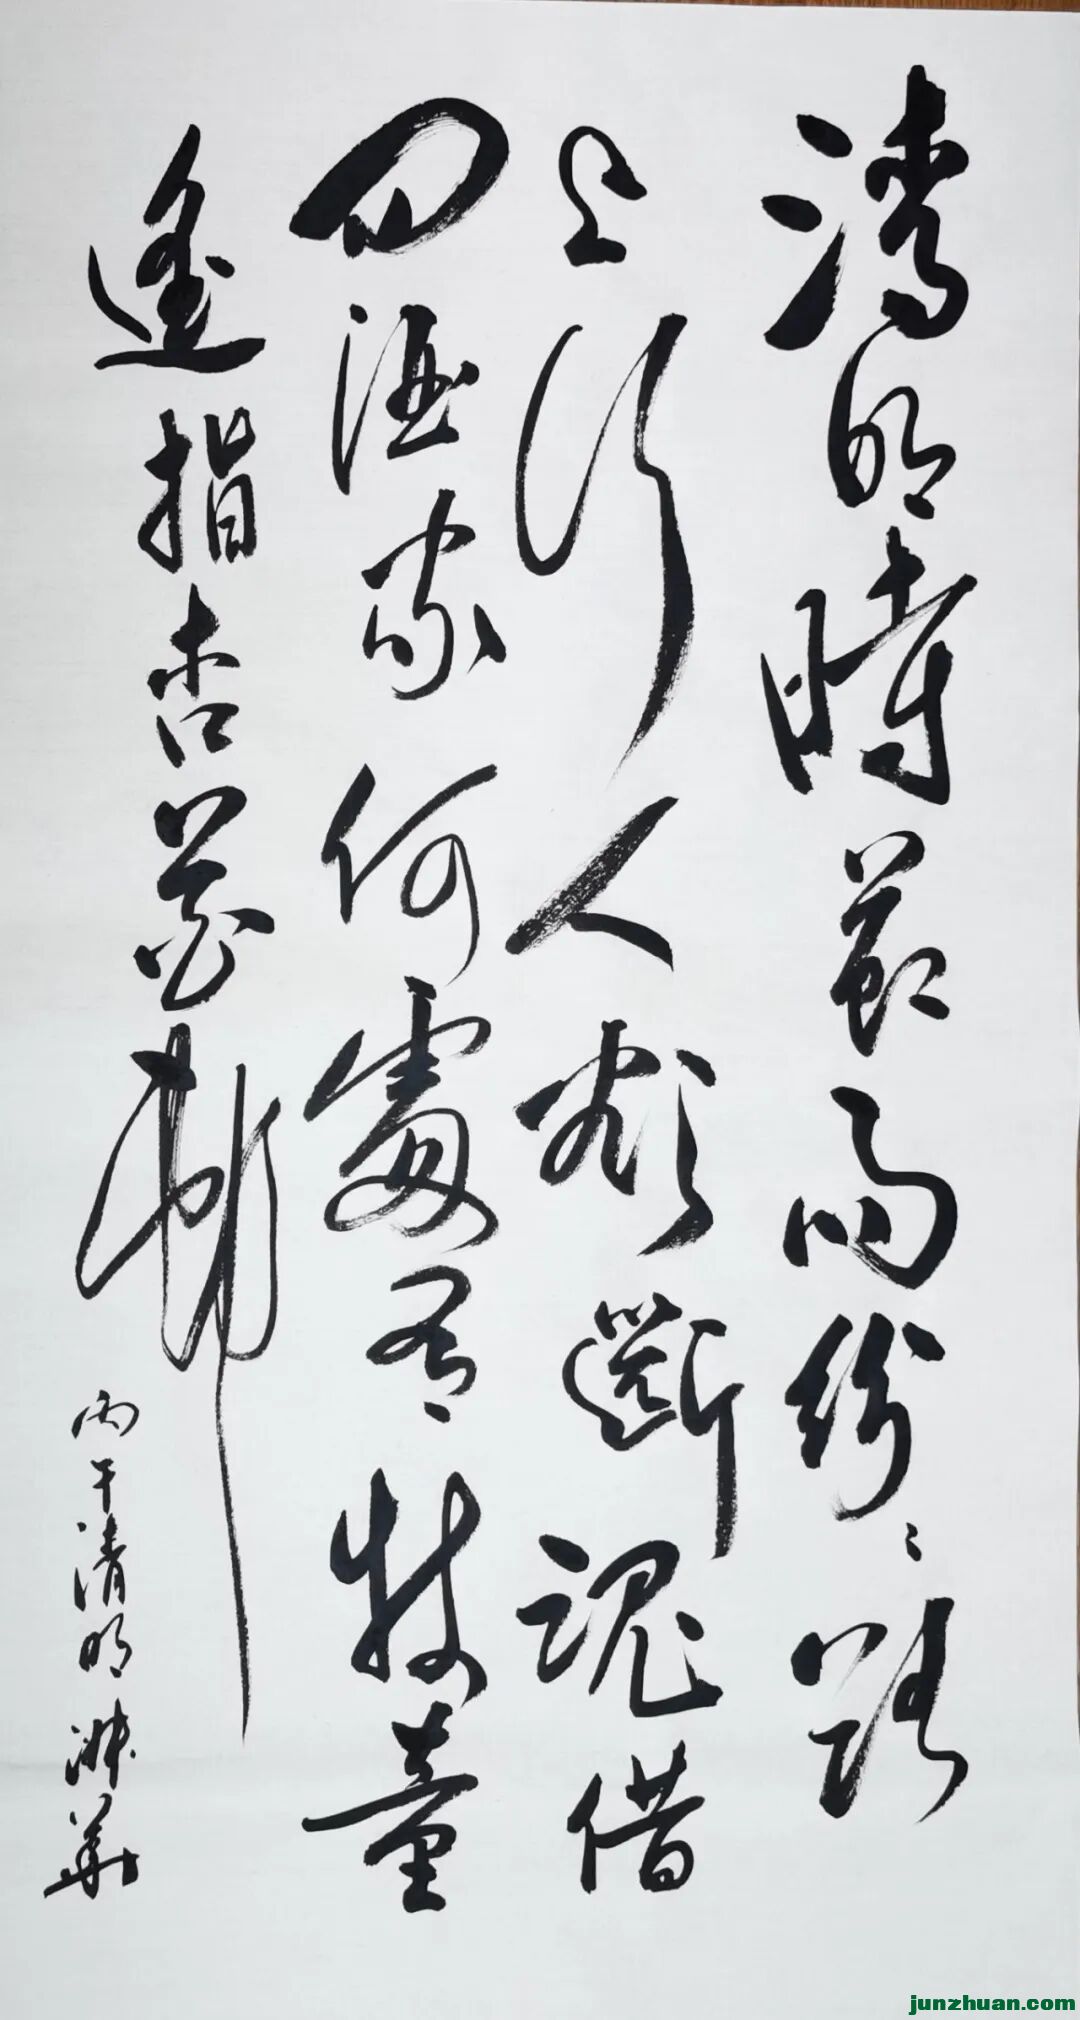 清明時節雨紛〻路
上行人欲斷魂借
問酒家何處有牧童
遙指杏花村
丙午清明華
junzhuan.com